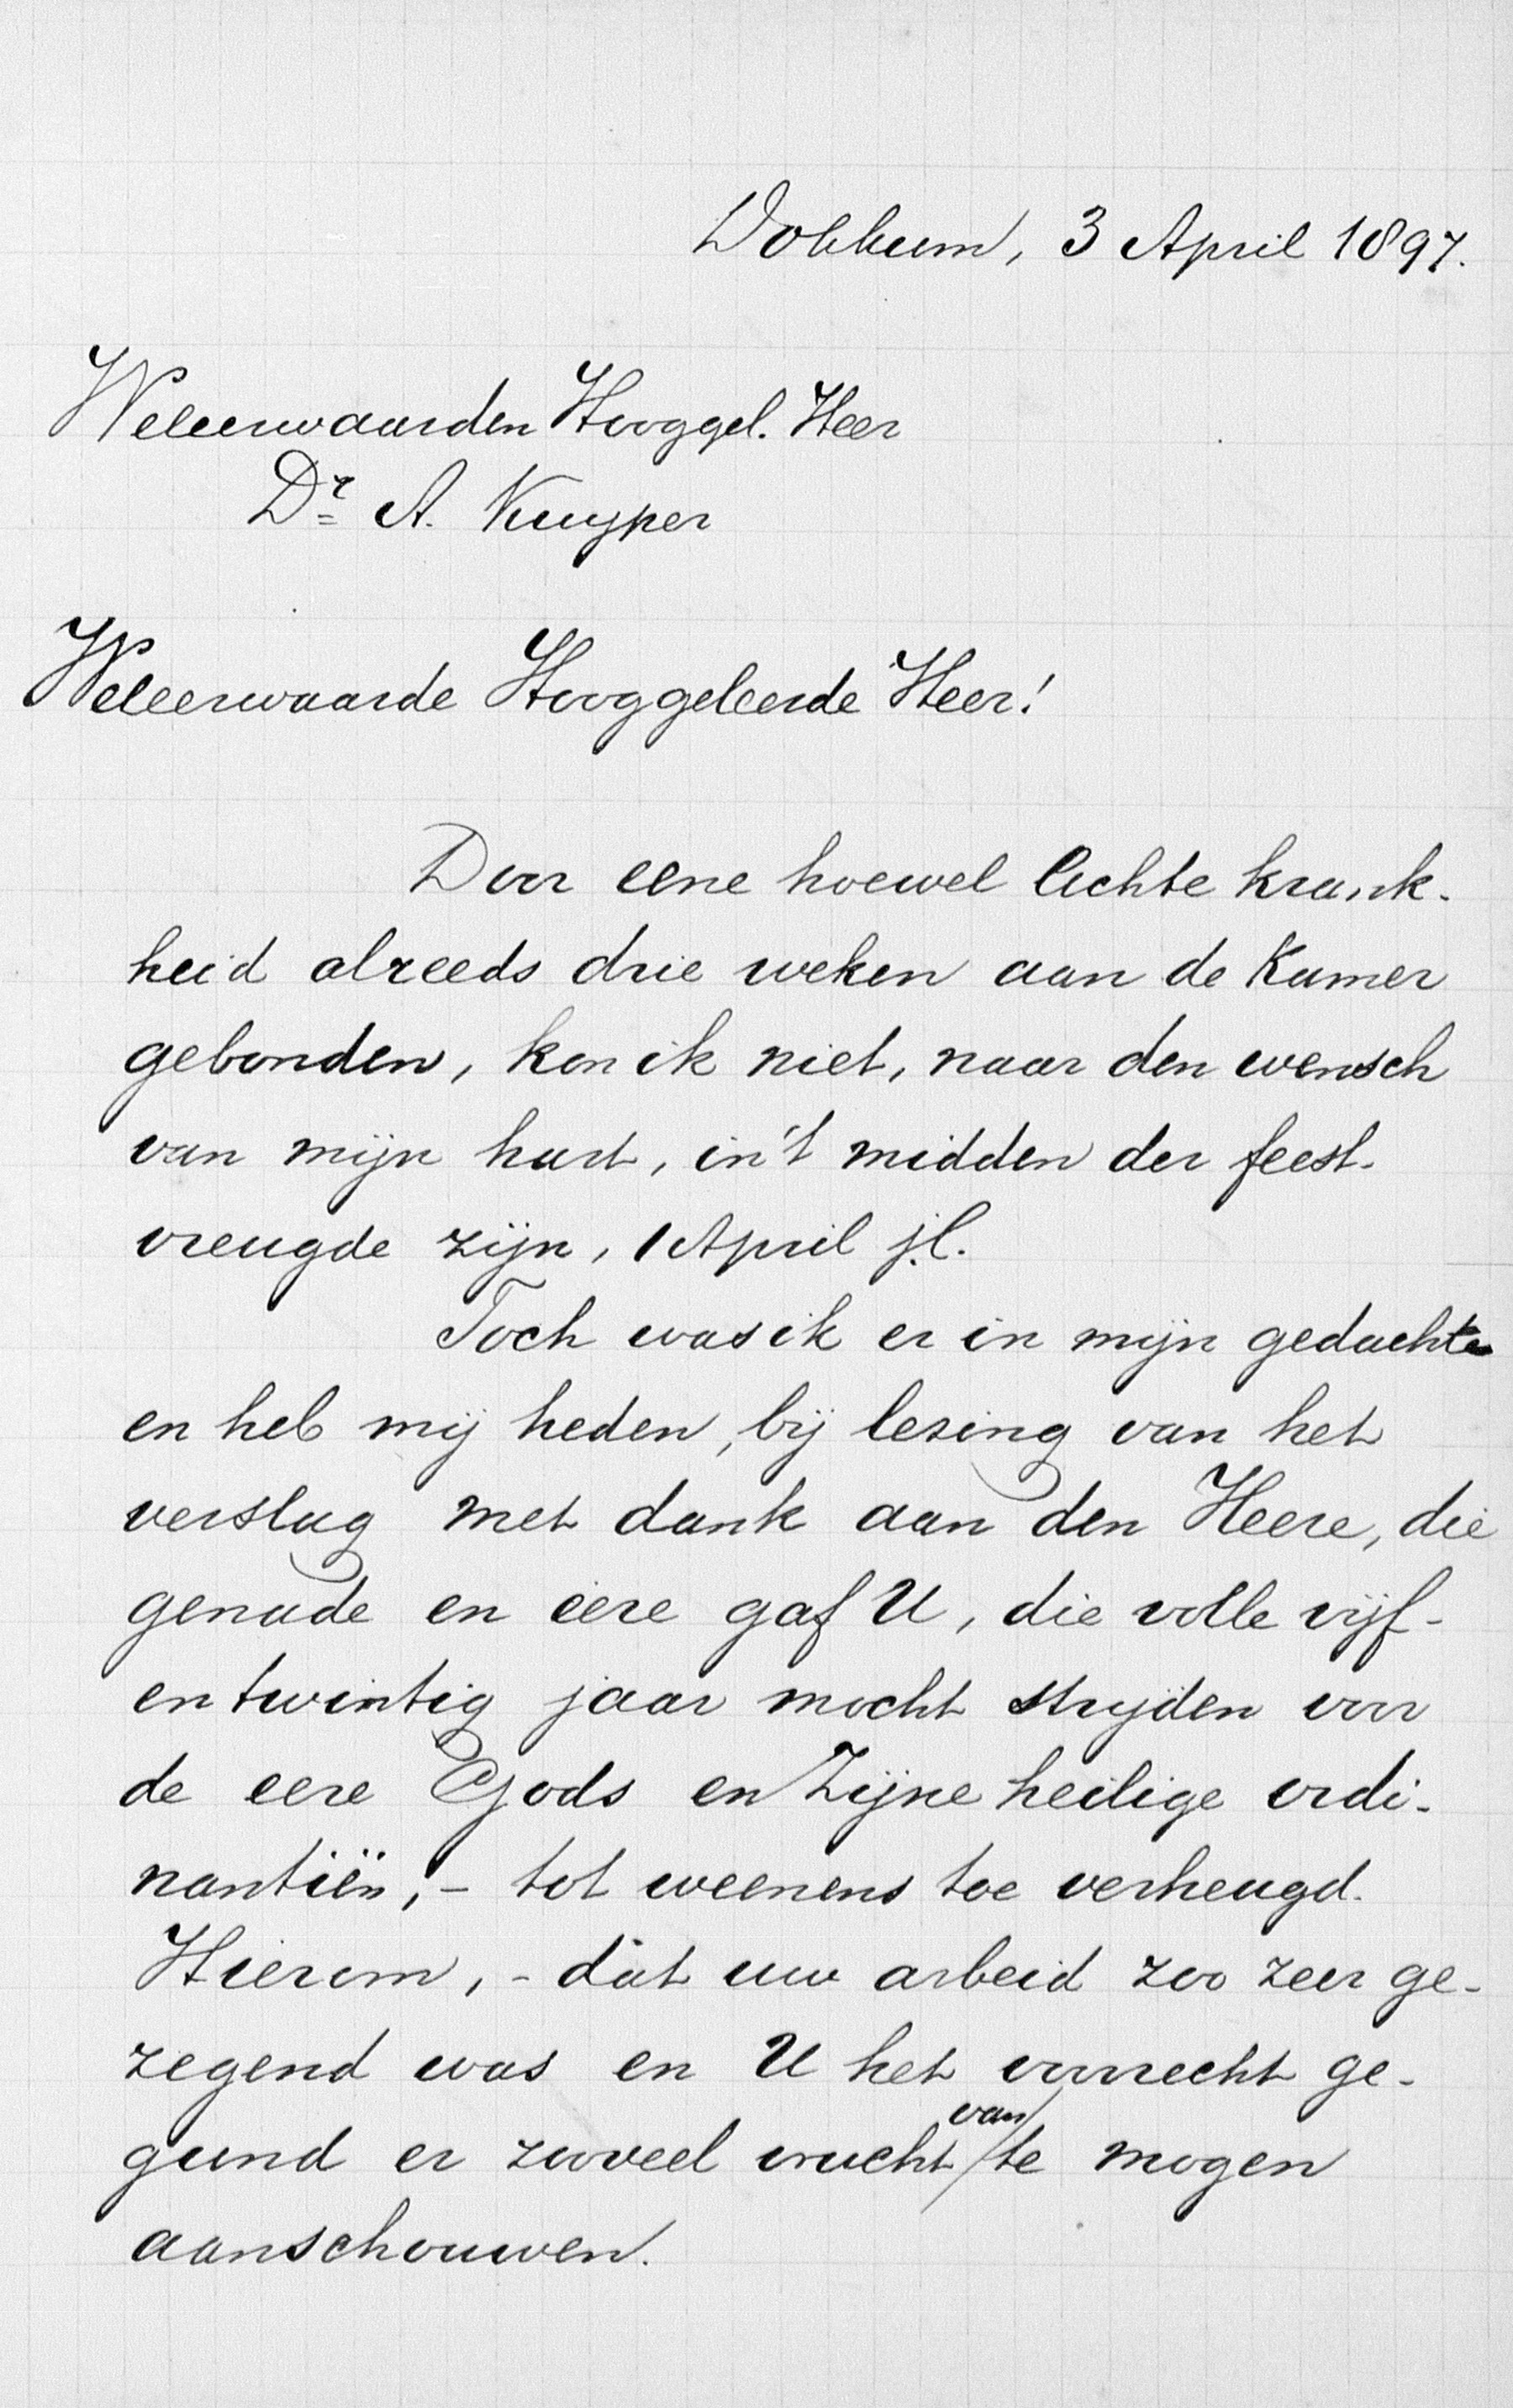 Dokkum, 3 April 1897.
Weleerwaarden Hooggel. Heer
Dr A. Kuyper
Weleerwaarde Hooggeleerde Heer!
Door eene hoewel lichte krank-
heid alreeds drie weken aan de Kamer
gebonden, kon ik niet, naar den wensch
van mijn hart, in 't midden der feest-
vreugde zijn, 1 April j.l.
Toch was ik er in mijn gedachte
en heb mij heden, bij lezing van het
verslag met dank aan den Heere, die
genade en eere gaf U, die volle vijf-
en twintig jaar mocht strijden voor
de eere Gods en Zijne heilige ordi-
nantiën, - tot weenens toe verheugd.
Hierom, - dat uw arbeid zoo zeer ge-
zegend was en U het voorrecht ge-
gund er zooveel vrucht van te mogen
aanschouwen.